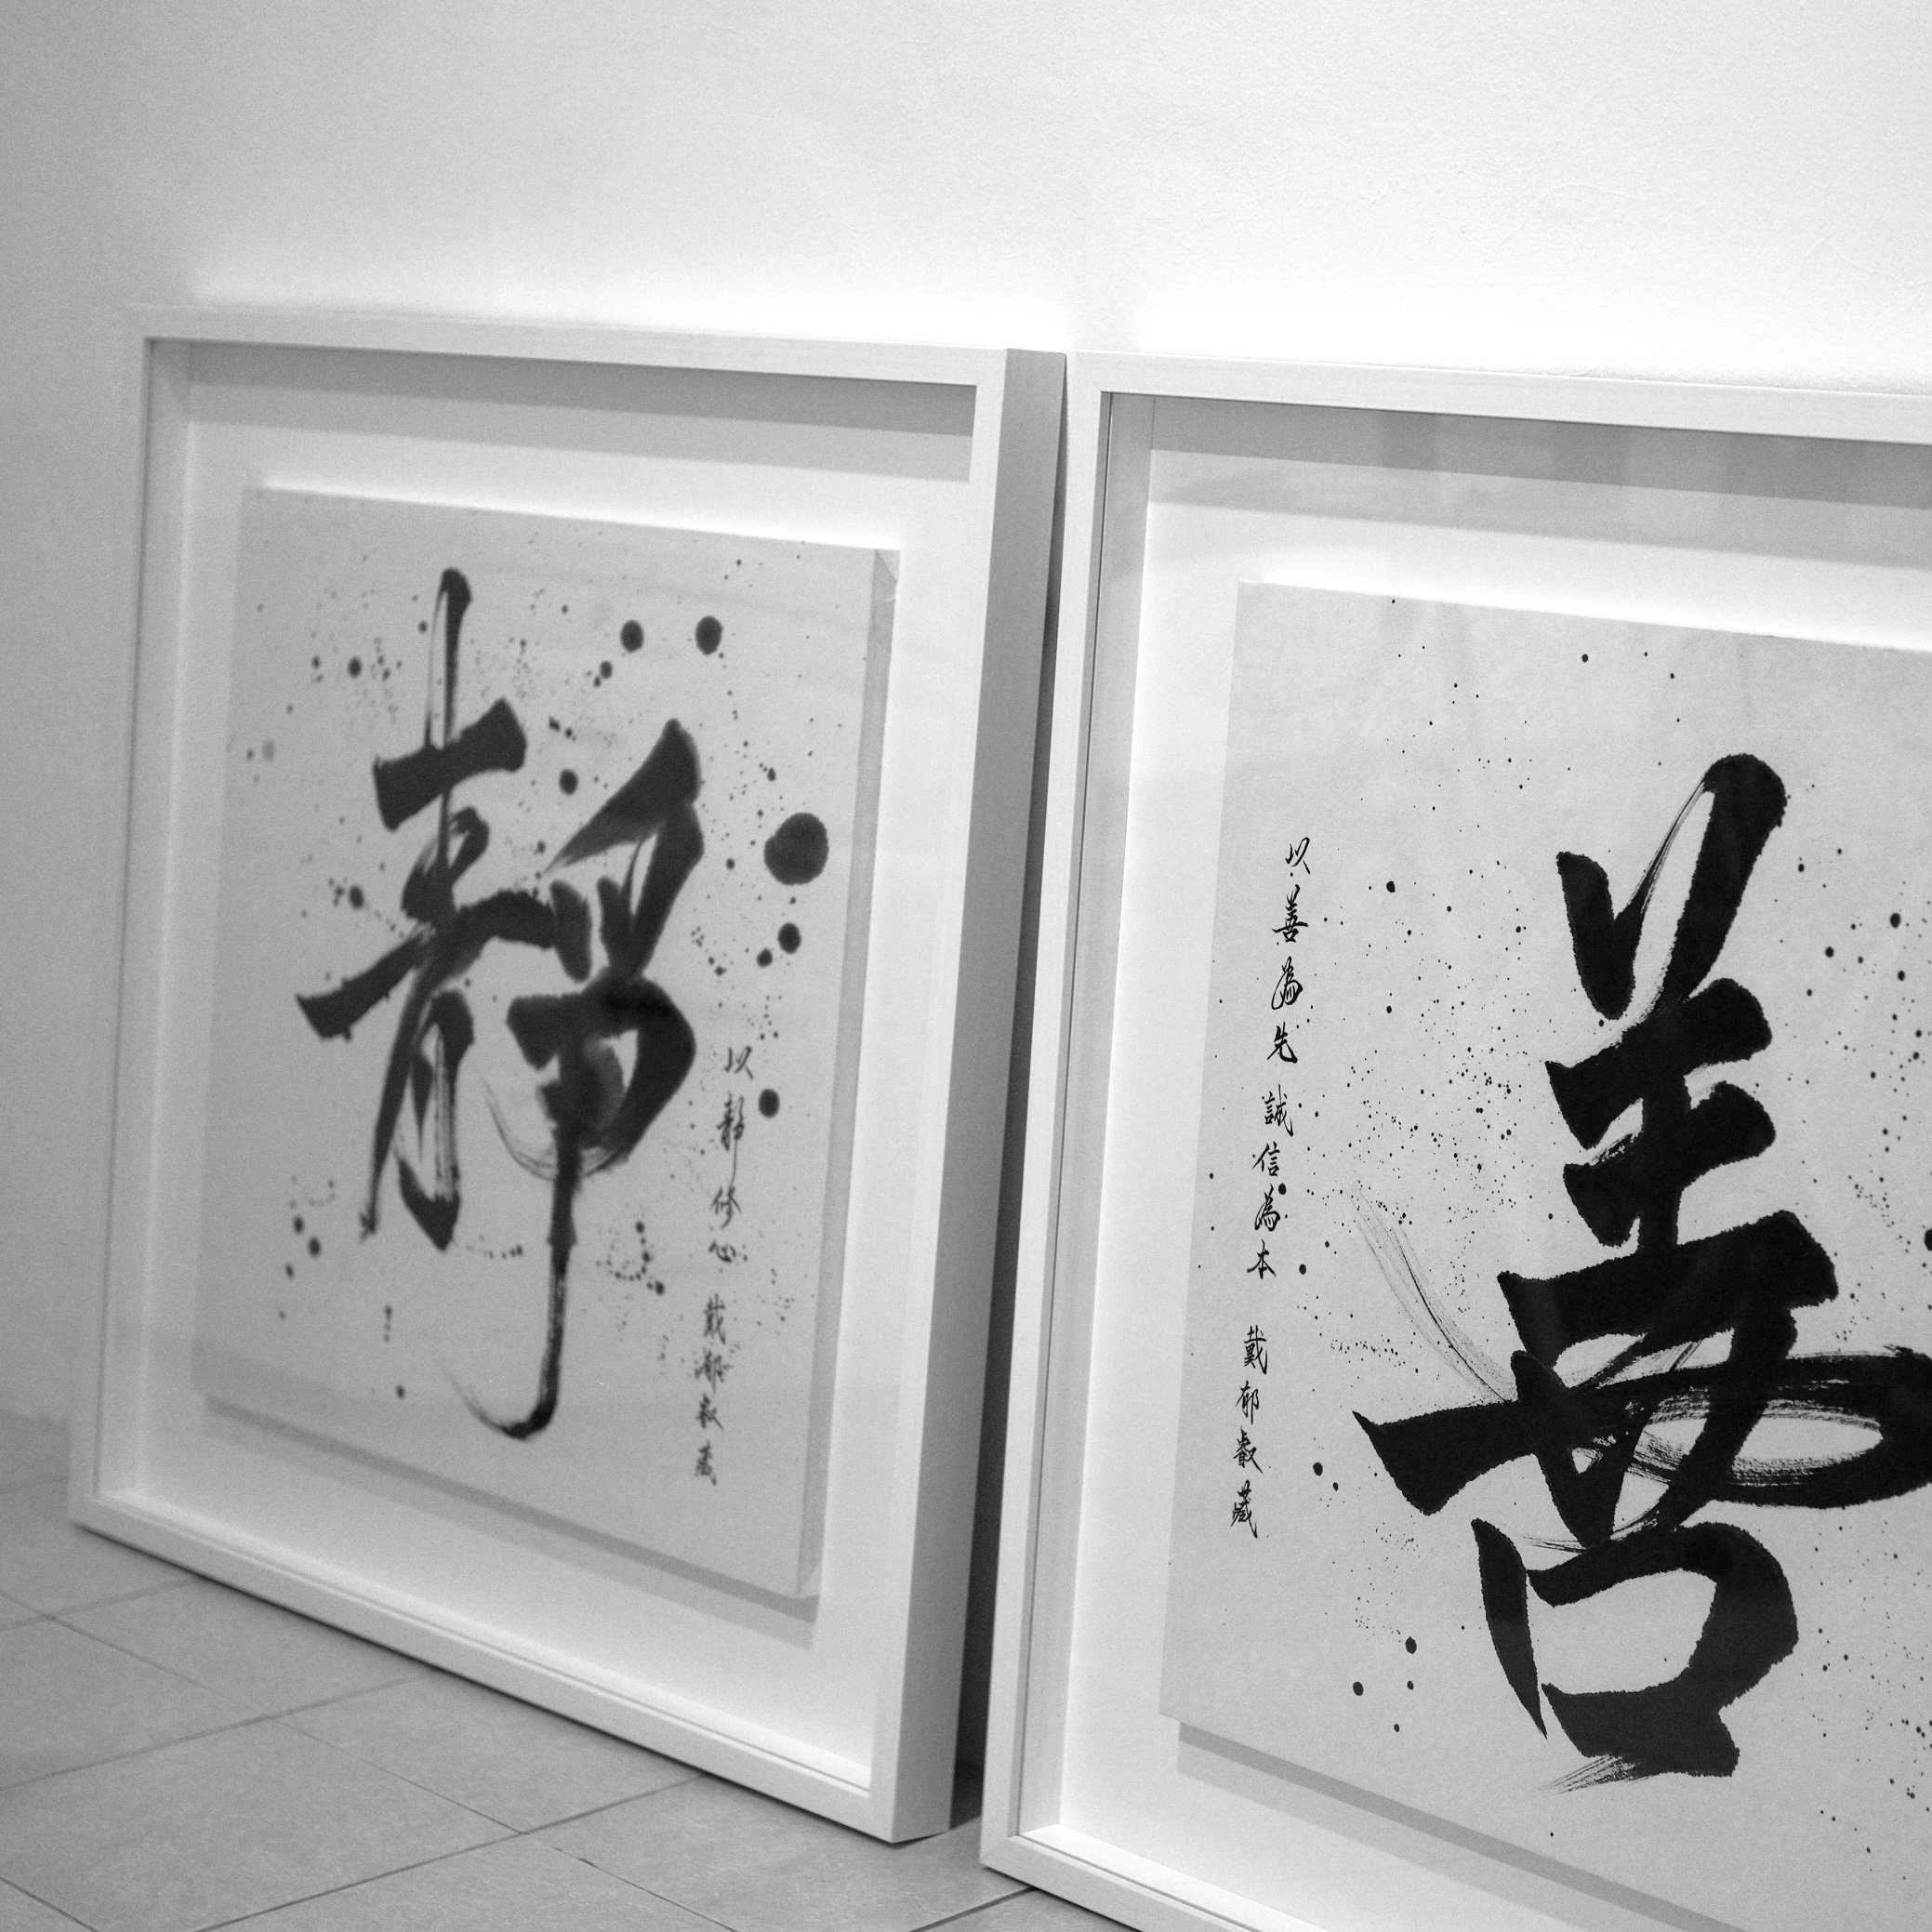 靜
以靜修心 戴郁叡藏
善
以善為先 誠信為本 戴郁叡藏